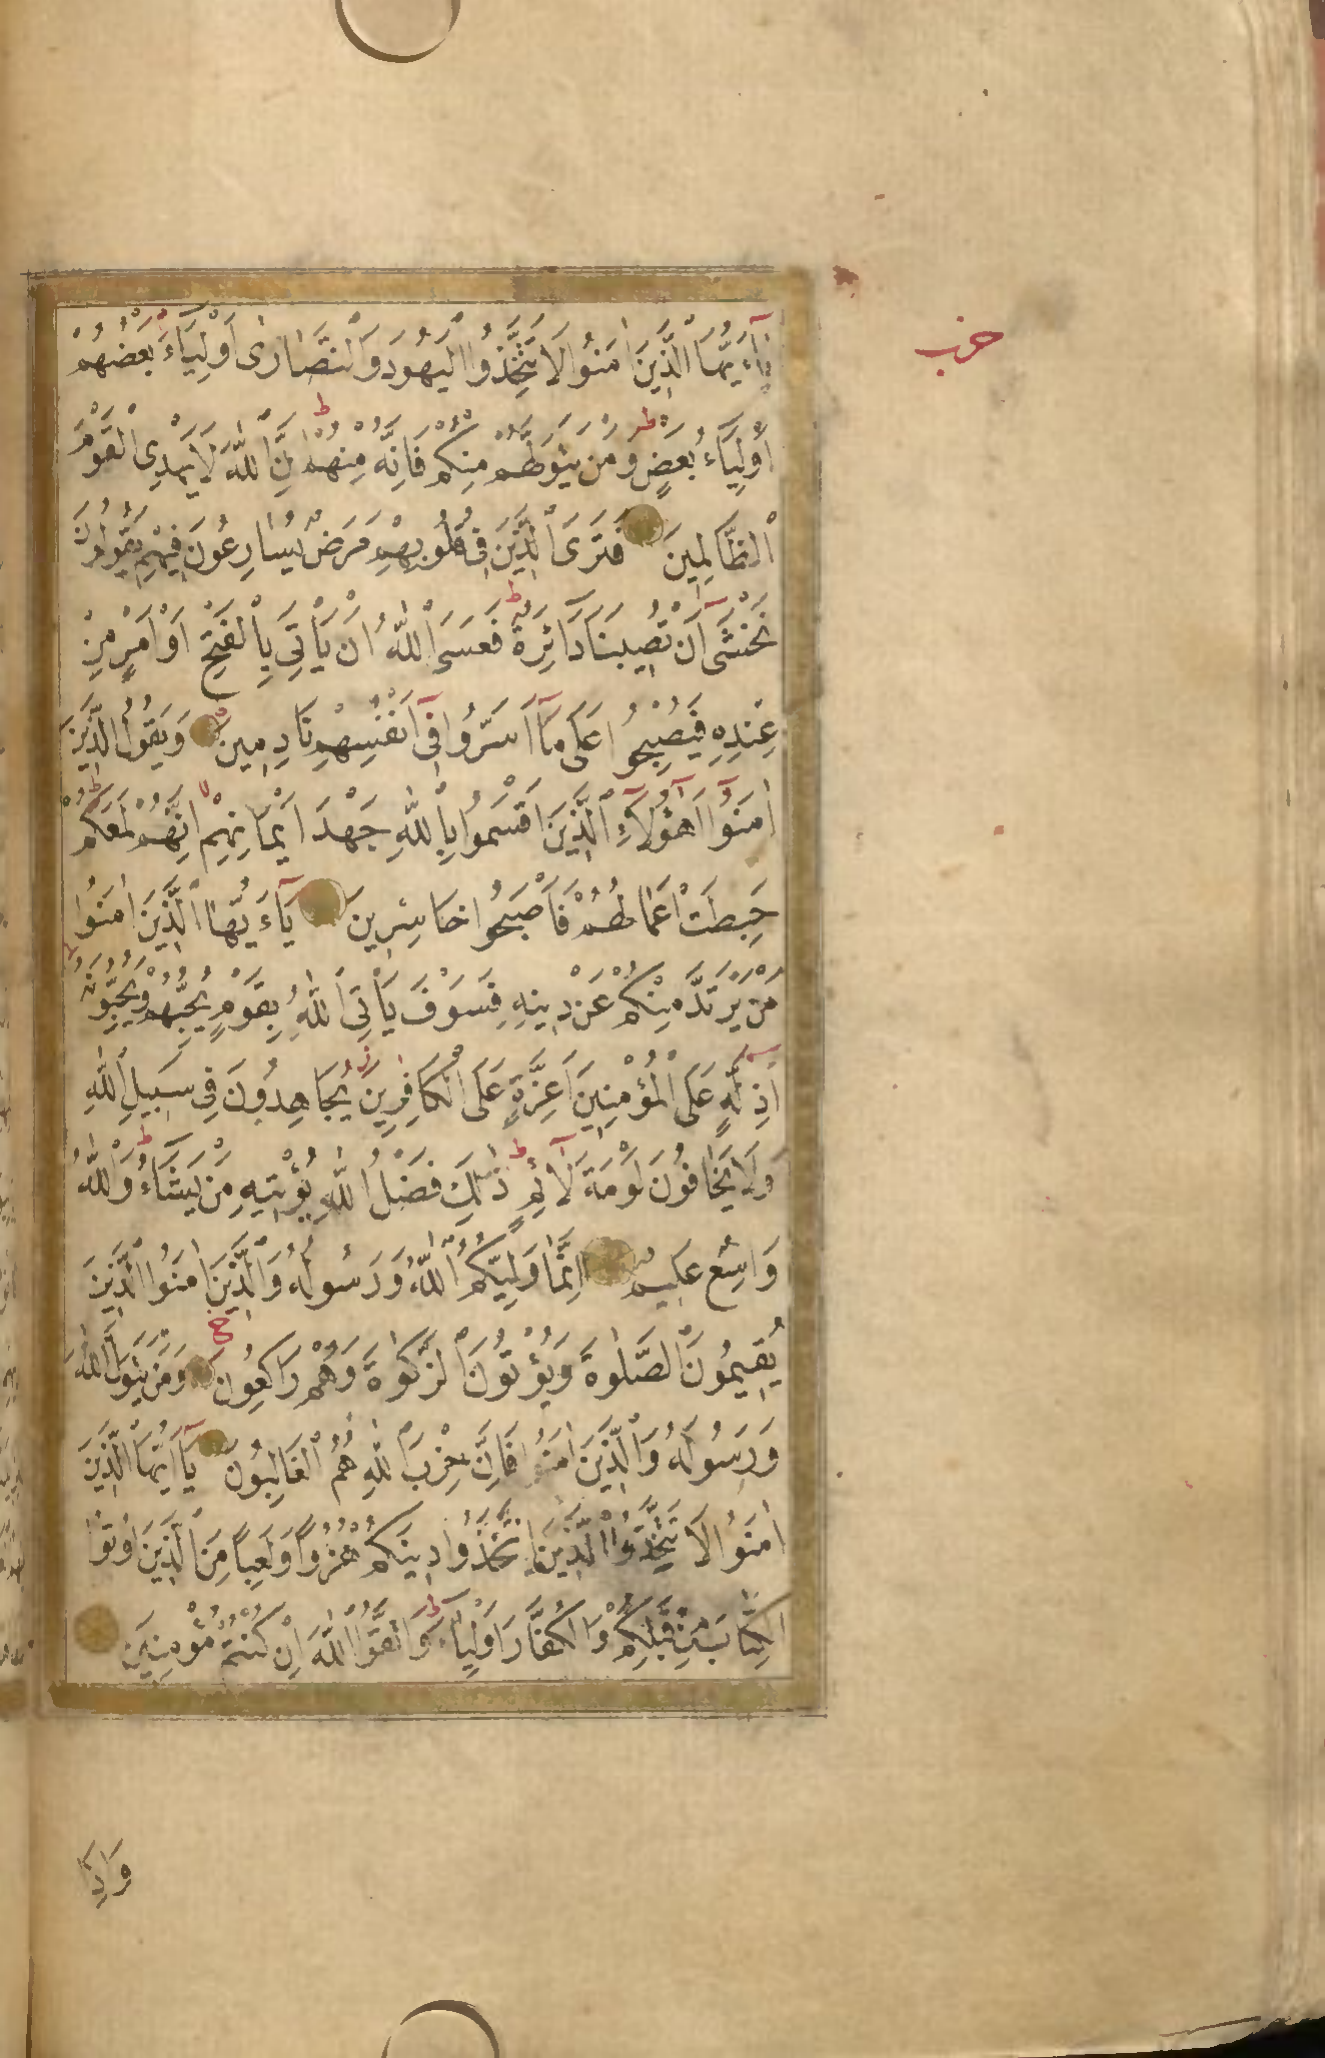 حزب
يَآءَيُّهَا الَّذِينَ اٰمَنُوا لَا تَتَّخِذُوا الْيَهُودَ وَالنَّصَارٰى اَوْلِيَآءَ بَعْضُهُمْ
اَوْلِيَآءُ بَعْضٍ وَمَنْ يَتَوَلَّهُمْ مِنْكُمْ فَاِنَّهُ مِنْهُمْ اِنَّ اللّٰهَ لَا يَهْدِى الْقَوْمَ
الظَّالِمِينَ فَتَرَى الَّذِينَ فِى قُلُوبِهِمْ مَرَضٌ يُسَارِعُونَ فِيهِمْ يَقُولُونَ
نَخْشٰٓى اَنْ تُصِيبَنَا دَآئِرَةٌ فَعَسَى اللّٰهُ اَنْ يَأْتِىَ بِالْفَتْحِ اَوْ اَمْرٍ مِنْ
عِنْدِهِ فَيُصْبِحُوا عَلٰى مَآ اَسَرُّوا فِىٓ اَنْفُسِهِمْ نَادِمِينَ وَيَقُولُ الَّذِينَ
اٰمَنُوٓا اَهٰٓؤُلَآءِ الَّذِينَ اَقْسَمُوا بِاللّٰهِ جَهْدَ اَيْمَانِهِمْ اِنَّهُمْ لَمَعَكُمْ
حَبِطَتْ اَعْمَالُهُمْ فَاَصْبَحُوا خَاسِرِينَ يَآءَيُّهَا الَّذِينَ اٰمَنُوا
مَنْ يَرْتَدَّ مِنْكُمْ عَنْ دِينِهِ فَسَوْفَ يَأْتِى اللّٰهُ بِقَوْمٍ يُحِبُّهُمْ وَيُحِبُّونَهُ
اَذِلَّةٍ عَلَى الْمُؤْمِنِينَ اَعِزَّةٍ عَلَى الْكَافِرِينَ يُجَاهِدُونَ فِى سَبِيلِ اللّٰهِ
وَلَا يَخَافُونَ لَوْمَةَ لَآئِمٍ ذٰلِكَ فَضْلُ اللّٰهِ يُؤْتِيهِ مَنْ يَشَآءُ وَاللّٰهُ
وَاسِعٌ عَلِيمٌ اِنَّمَا وَلِيُّكُمُ اللّٰهُ وَرَسُولُهُ وَالَّذِينَ اٰمَنُوا الَّذِينَ
يُقِيمُونَ الصَّلٰوةَ وَيُؤْتُونَ الزَّكٰوةَ وَهُمْ رَاكِعُونَ وَمَنْ يَتَوَلَّ اللّٰهَ
وَرَسُولَهُ وَالَّذِينَ اٰمَنُوا فَاِنَّ حِزْبَ اللّٰهِ هُمُ الْغَالِبُونَ يَآ اَيُّهَا الَّذِينَ
اٰمَنُوا لَا تَتَّخِذُوا الَّذِينَ اتَّخَذُوا دِينَكُمْ هُزُوًا وَلَعِبًا مِنَ الَّذِينَ اُوتُوا
الْكِتَابَ مِنْ قَبْلِكُمْ وَالْكُفَّارَ اَوْلِيَآءَ وَاتَّقُوا اللّٰهَ اِنْ كُنْتُمْ مُؤْمِنِينَ
وَاِذَا